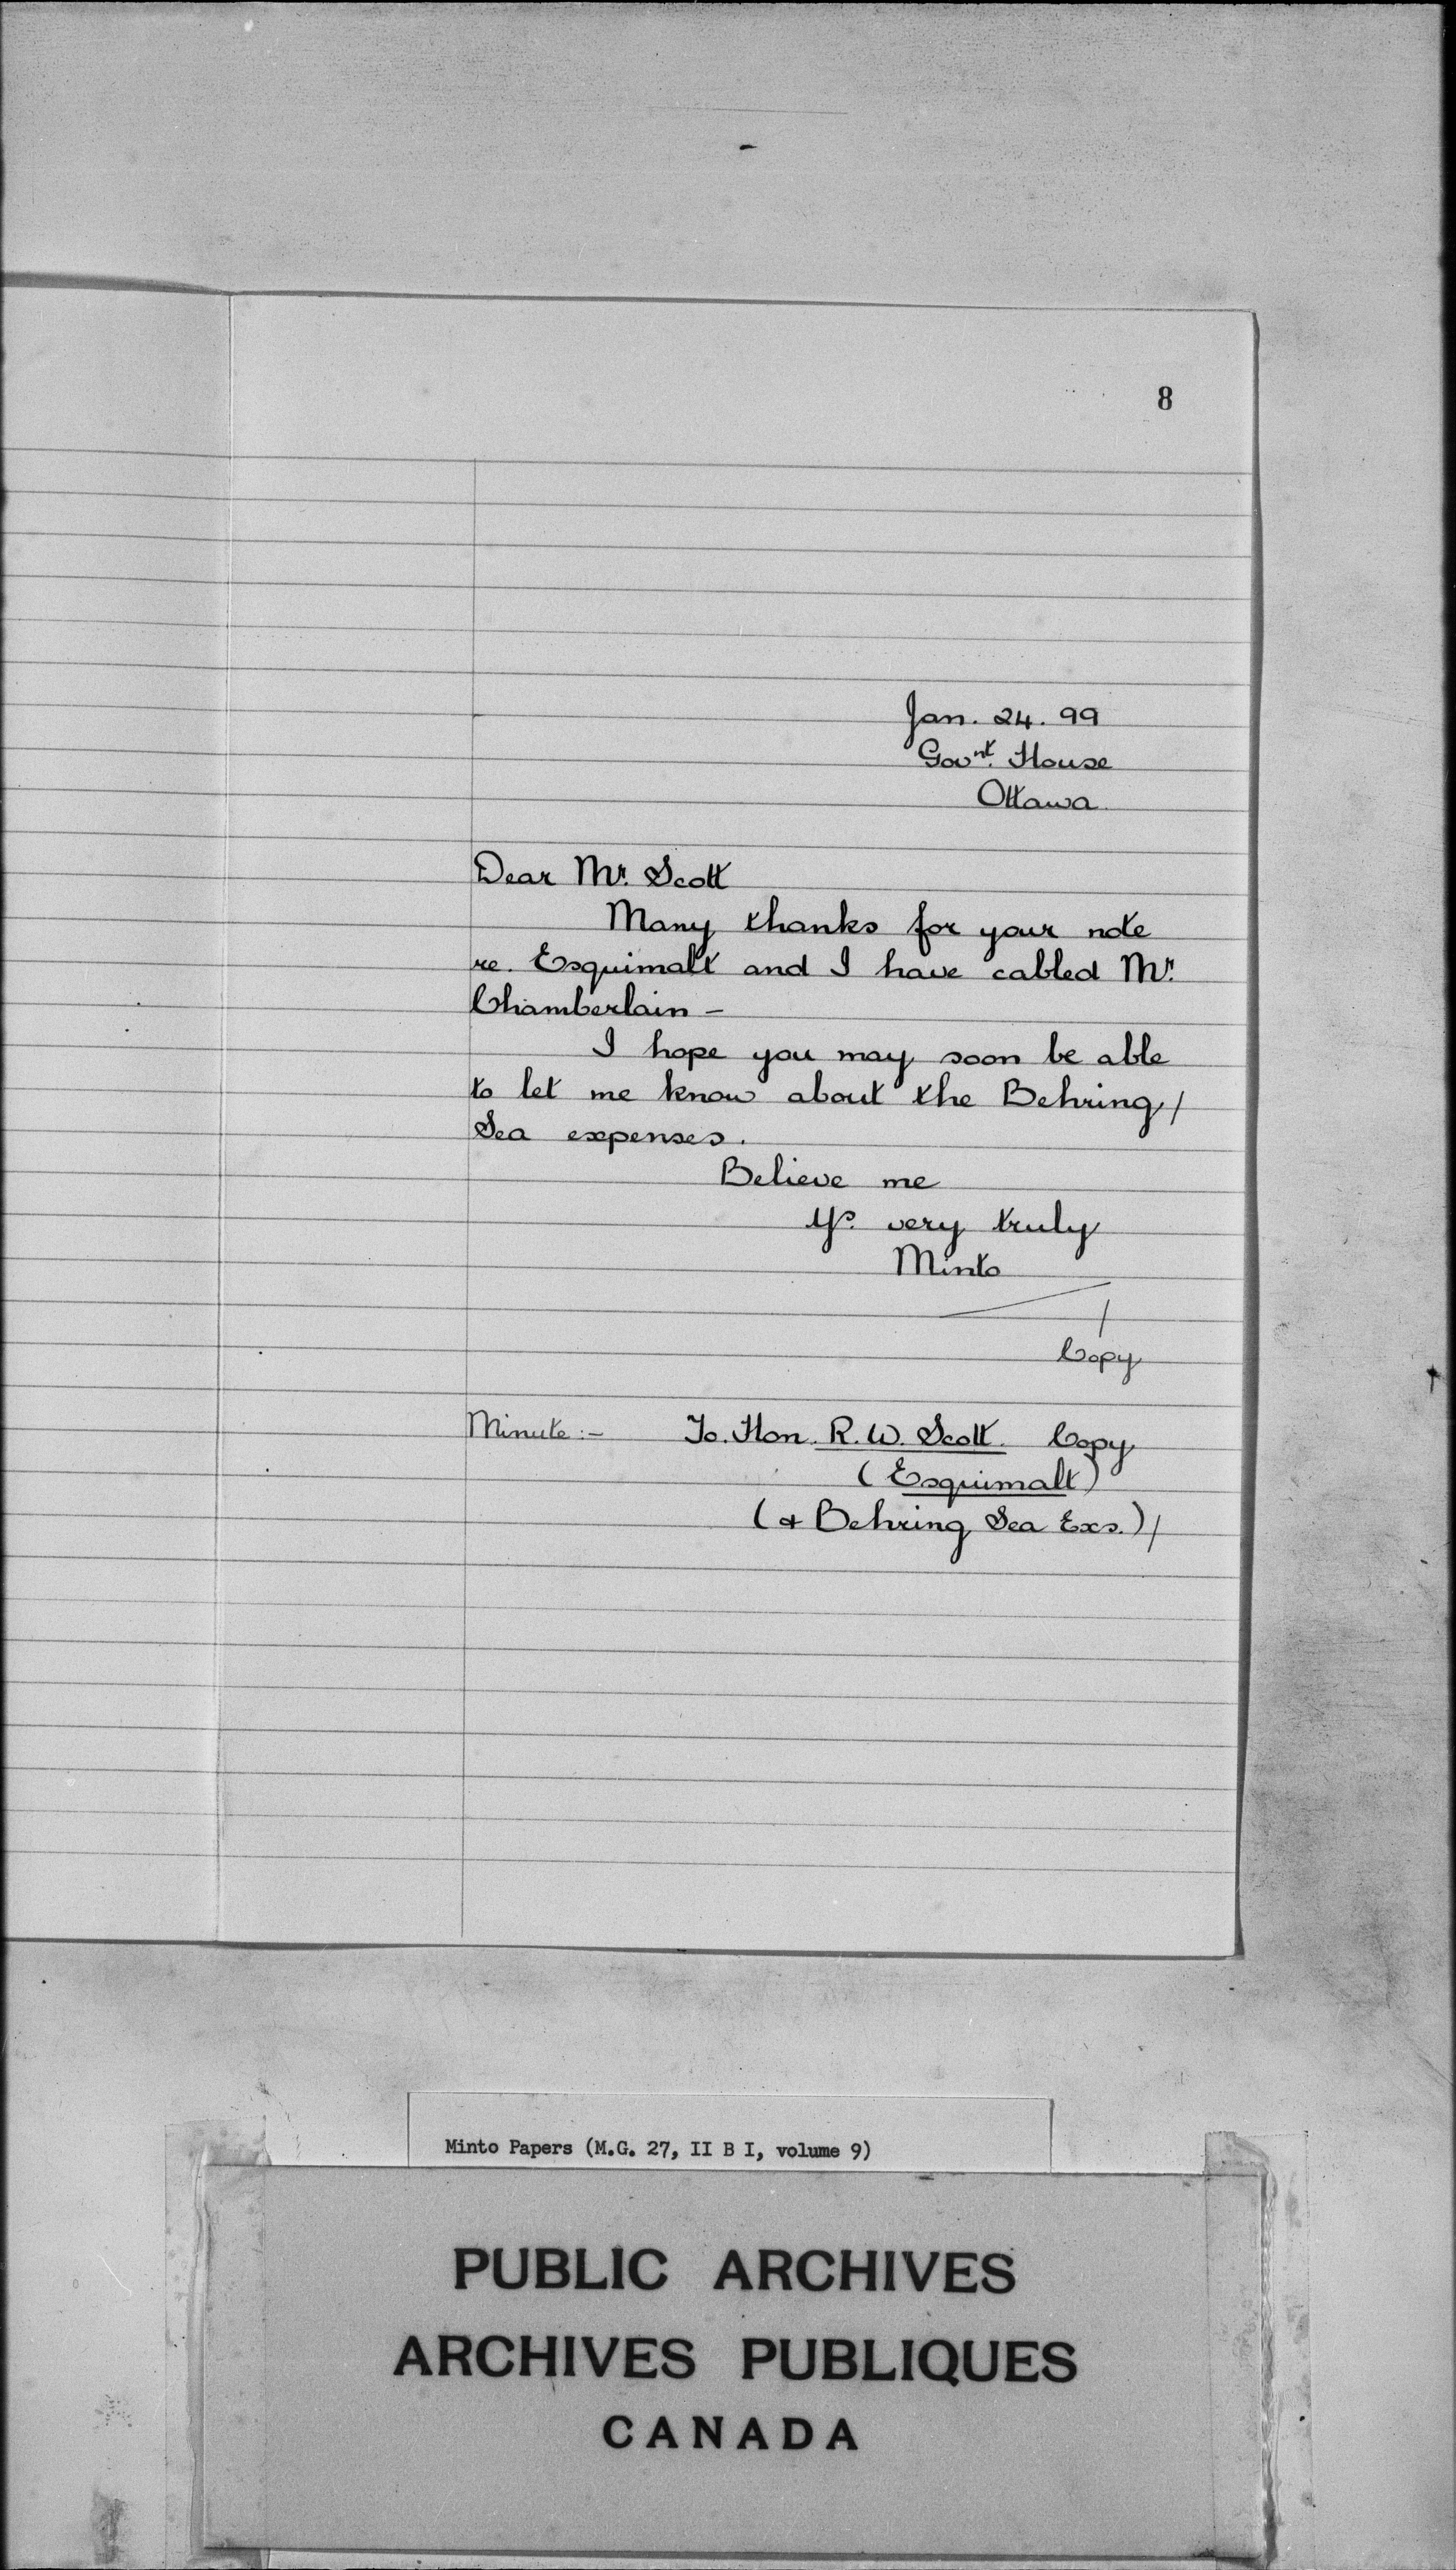 8
Jan. 24. 99
Govnt. House
Ottawa
Dear Mr. Scott
Many thanks for your note
re. Esquimalt and I have cabled Mr.
Chamberlain –
I hope you may soon be able
to let me know about the Behring /
Sea expenses.
Believe me
Ys. very truly
Minto
Copy
Minute :– To. Hon. R. W. Scott. Copy
(Esquimalt)
(& Behring Sea Exs.) /
Minto Papers (M.G. 27, II B I, volume 9)
PUBLIC ARCHIVES
ARCHIVES PUBLIQUES
CANADA